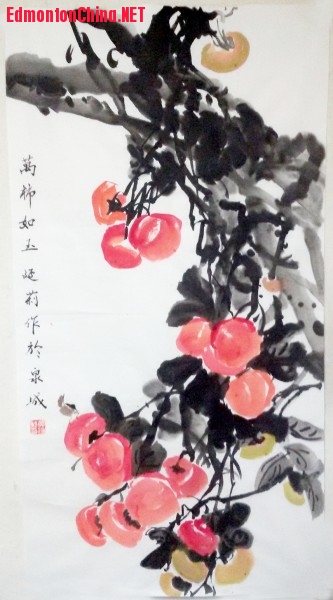 EdmontonChina.NET
萬柿如玉 娫莉作於泉城